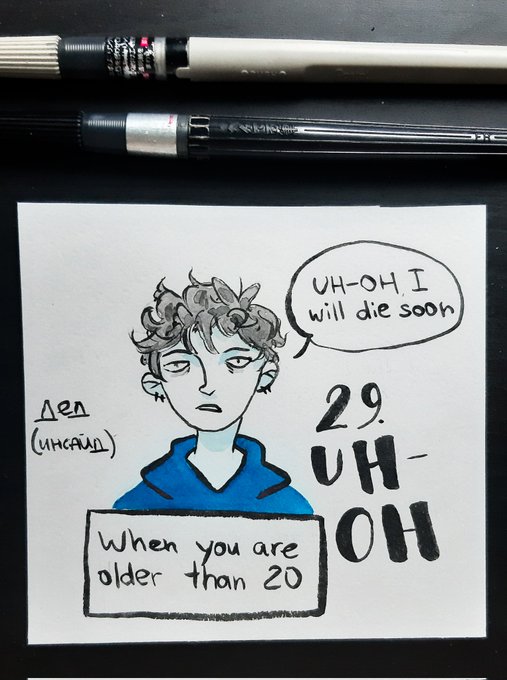 UH-OH, I
will die soon
29.
UH-
OH
Дед
(инсайд)
When you are
older than 20